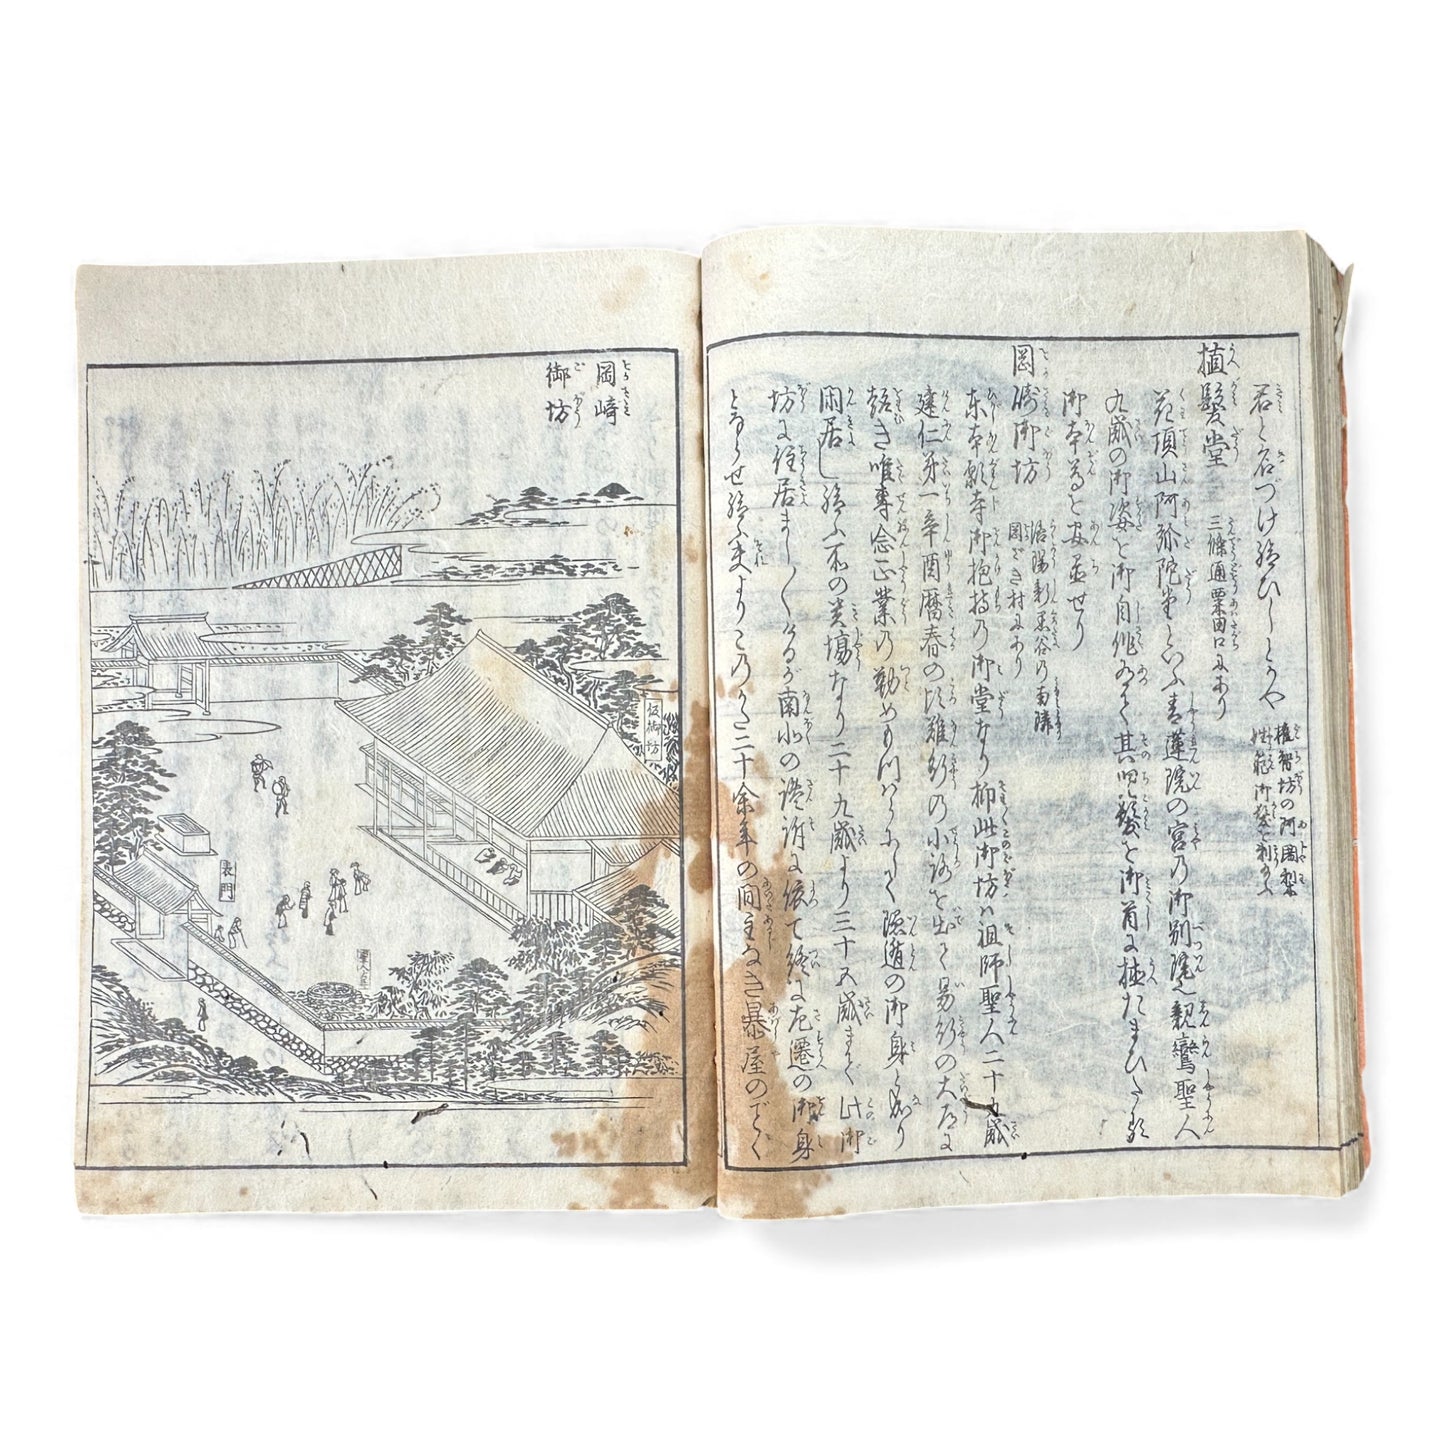 君と名づけ給ひしとかや
権智坊の阿闍梨
此節御髪を剃り給ふ
植髪堂 三條通粟田口にあり
花頂山阿弥陀堂といふ青蓮院の宮の御別院也親鸞聖人
九歳の御姿を御自作ありて其児髪を御首に植たまひたる
御本尊を安置せり
岡崎御坊
洛陽新黒谷の南隣
岡ざき村にあり
東本願寺御抱持の御堂なり抑此御坊ハ祖師聖人二十九歳
建仁第一辛酉暦春の頃難行の小路を出て易行の大道に
趣き唯専念正業の勤めも
隠遁の御身と成り
閑居し給ふ所の芙塲なり二十九歳より三十五歳まで此御
坊に住居まし〳〵けるが南北の讒訴に依て終に左遷の御身
とならせ給ふ夫よりこのかた三十余年の間主なき暴屋のごとく
岡崎
御坊
仮御坊
裏門